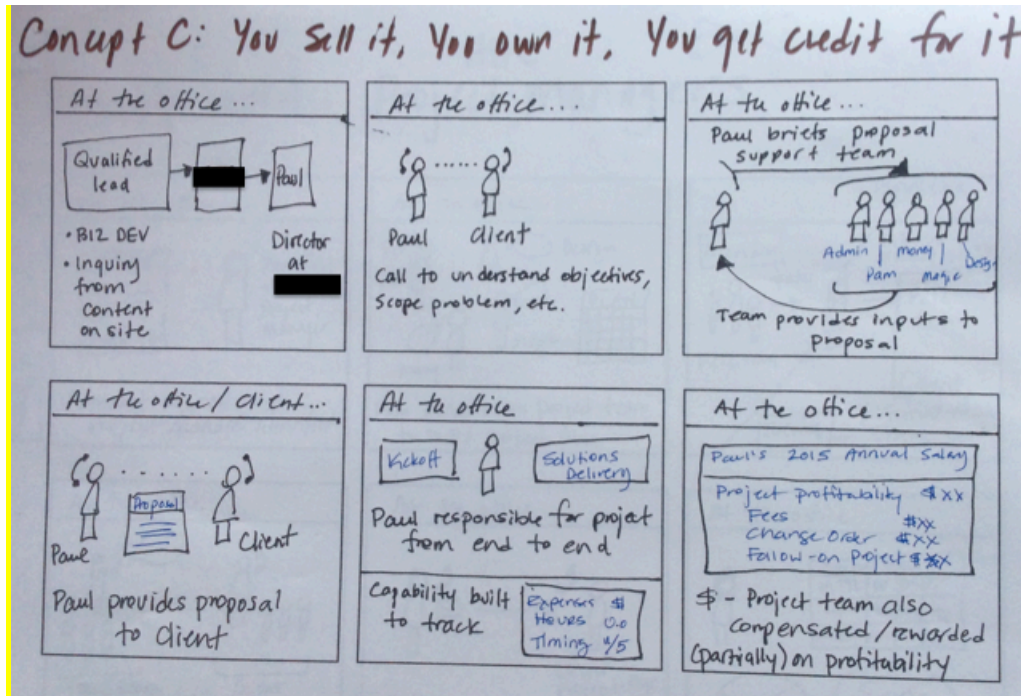 Concept C: You sell it, You own it, You get credit for it
At the office...
Qualified
lead
Paul
• BIZ DEV
• Inquiry
from
content
on site
Director
at
At the office...
Paul
Client
Call to understand objectives,
scope problem, etc.
At the office...
Paul briefs proposal
support team
Admin
Pam
money
magic
Design
Team provides inputs to
proposal
At the office / client...
Proposal
Paul
Client
Paul provides proposal
to client
At the office
Kickoff
Solutions
Delivery
Paul responsible for project
from end to end
Capability built
to track
Expenses $
Hours 0.0
Timing
At the office...
Paul's 2015 Annual Salary
Project profitability $XX
Fees $XX
Change Order $XX
Follow-on Project $XX
$ - Project team also
compensated/rewarded
(partially) on profitability